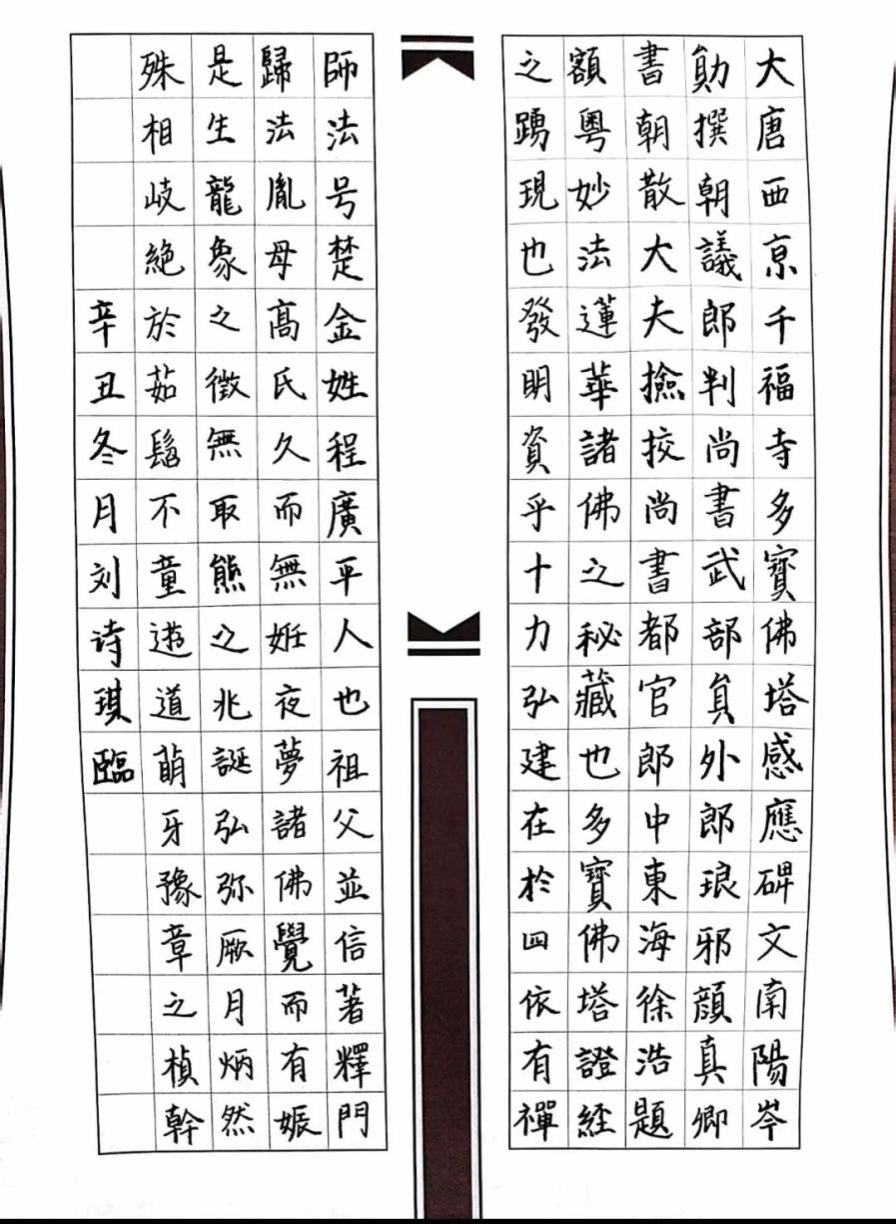 大唐西亰千福寺多寳佛塔感應碑文南陽岑
勛撰朝議郎判尚書武部員外郎琅邪顔真卿
書朝散大夫撿挍尚書都官郎中東海徐浩題
額粵妙法蓮華諸佛之秘藏也多寳佛塔證經
之踴現也發明資乎十力弘建在於四依有禪
師法号楚金姓程廣平人也祖父並信著釋門
歸法胤母高氏久而無姙夜夢諸佛覺而有娠
是生龍象之徵無取熊之兆誕弘弥厥月炳然
殊相岐絶於茹髫不童遊道萌牙豫章之楨幹
辛丑冬月刘诗琪臨